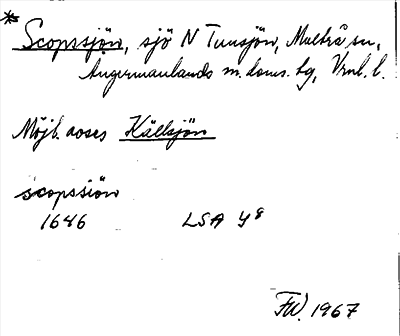 * Scopssjön, sjö N Tunsjön, Multrå sn,
Ångermanlands m. doms. tg, Vrnl. l.
Möjl. avses Källsjön
scopssiön
1646 LSA Y8
FW. 1967